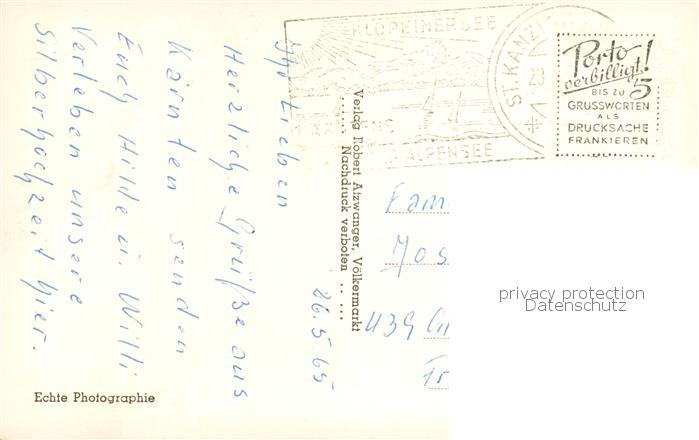 KLOPEINERSEE
ALPENSEE
ST. KANZI
23
V
Porto
verbilligt!
BIS ZU 5
GRUSSWORTEN
ALS
DRUCKSACHE
FRANKIEREN
26.5.65
Ihr Lieben
Herzliche Grüße aus
Kärnten senden
Euch Hilde u. Willi
Verleben unsere
Silberhochzeit hier.
Verlag Robert Atzwanger, Völkermarkt
..... Nachdruck verboten .. ...
Fam
Jos
439
Echte Photographie
privacy protection
Datenschutz